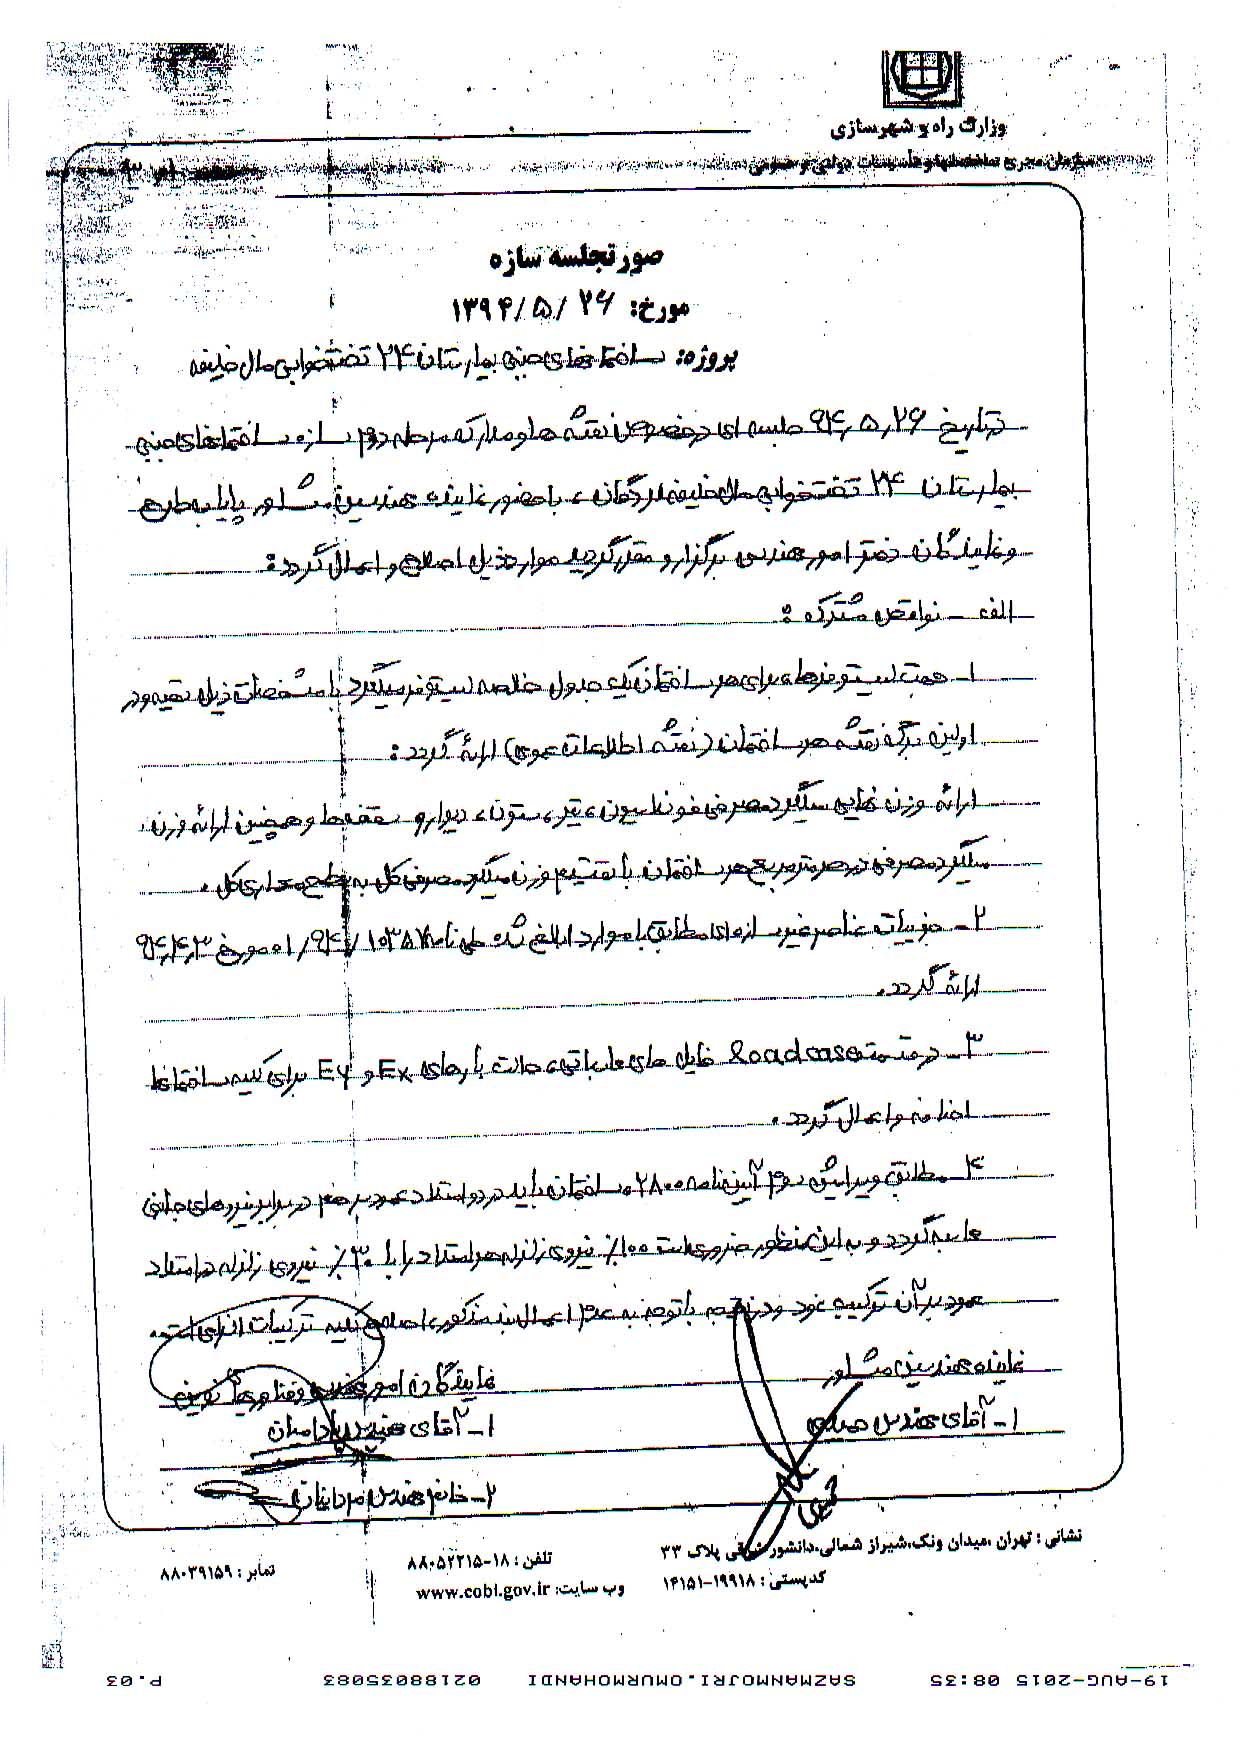 وزارت راه و شهرسازی
سازمان مجری ساختمانها و تأسیسات دولتی و عمومی
صورتجلسه سازه
مورخ: ۱۳۹۴/۵/۲۶
پروژه: ساختمانهای جنبی بیمارستان ۲۴ تختخوابی مال خلیفه
در تاریخ ۹۴،۵،۲۶ جلسه ای در خصوص نقشه ها و مدارک مرحله دوم سازه ساختمانهای جنبی
بیمارستان ۲۴ تختخوابی مال خلیفه لردگان، با حضور نماینده مهندسین مشاور پایا به طرح
و نمایندگان دفتر امور مهندسی برگزار و مقرر گردید موارد ذیل اصلاح و اعمال گردد:
الف - نواقص مشترک:
۱- جهت لیستوفرها، برای هر ساختمان یک جدول خلاصه لیستوفر میلگرد با مشخصات ذیل تهیه و در
اولین برگ نقشه هر ساختمان (نقشه اطلاعات عمومی) ارائه گردد:
ارائه وزن نهایی میلگرد مصرفی فونداسیون، تیر، ستون، دیوار و سقف‌ها و همچنین ارائه وزن
میلگرد مصرفی در هر متر مربع هر ساختمان با تقسیم وزن میلگرد مصرفی کل به سطح معماری کل.
۲- جزییات عناصر غیر سازه‌ای مطابق با موارد ابلاغ شده طی نامه ۰۱/۹۴/۱۰۳۵۷ مورخ ۹۴،۴،۳
ارائه گردد.
۳- در قسمت loadcase فایل های محاسباتی، حالت بارهای Ex و Ey برای کلیه ساختمانها
اضافه و اعمال گردد.
۴- مطابق ویرایش سوم آیین‌نامه ۲۸۰۰، ساختمان باید در دو امتداد عمود بر هم در برابر نیروهای جانبی
محاسبه گردد و به این منظور ضروری است ۱۰۰٪ نیروی زلزله هر امتداد را با ۳۰٪ نیروی زلزله در امتداد
عمود بر آن ترکیب نمود و در نتیجه با توجه به عدم اعمال بند مذکور، اصلاح کلیه ترکیبات الزامی است.
نماینده مهندسین مشاور
نمایندگان امور مهندسی و فناوریهای نوین
۱- آقای مهندس حیدری
۱- آقای مهندس
۲- خانم مهندس
نشانی: تهران، میدان ونک، شیراز شمالی، دانشور شرقی پلاک ۳۳
تلفن: ۱۸-۸۸۰۵۲۲۱۵
نمابر: ۸۸۰۳۹۱۵۹
کدپستی: ۱۹۹۱۸-۱۴۱۵۱
وب سایت: www.cobi.gov.ir
19-AUG-2015 08:35 SAZMANMOJRI.OMURMOHANDI 02188035083 P.03